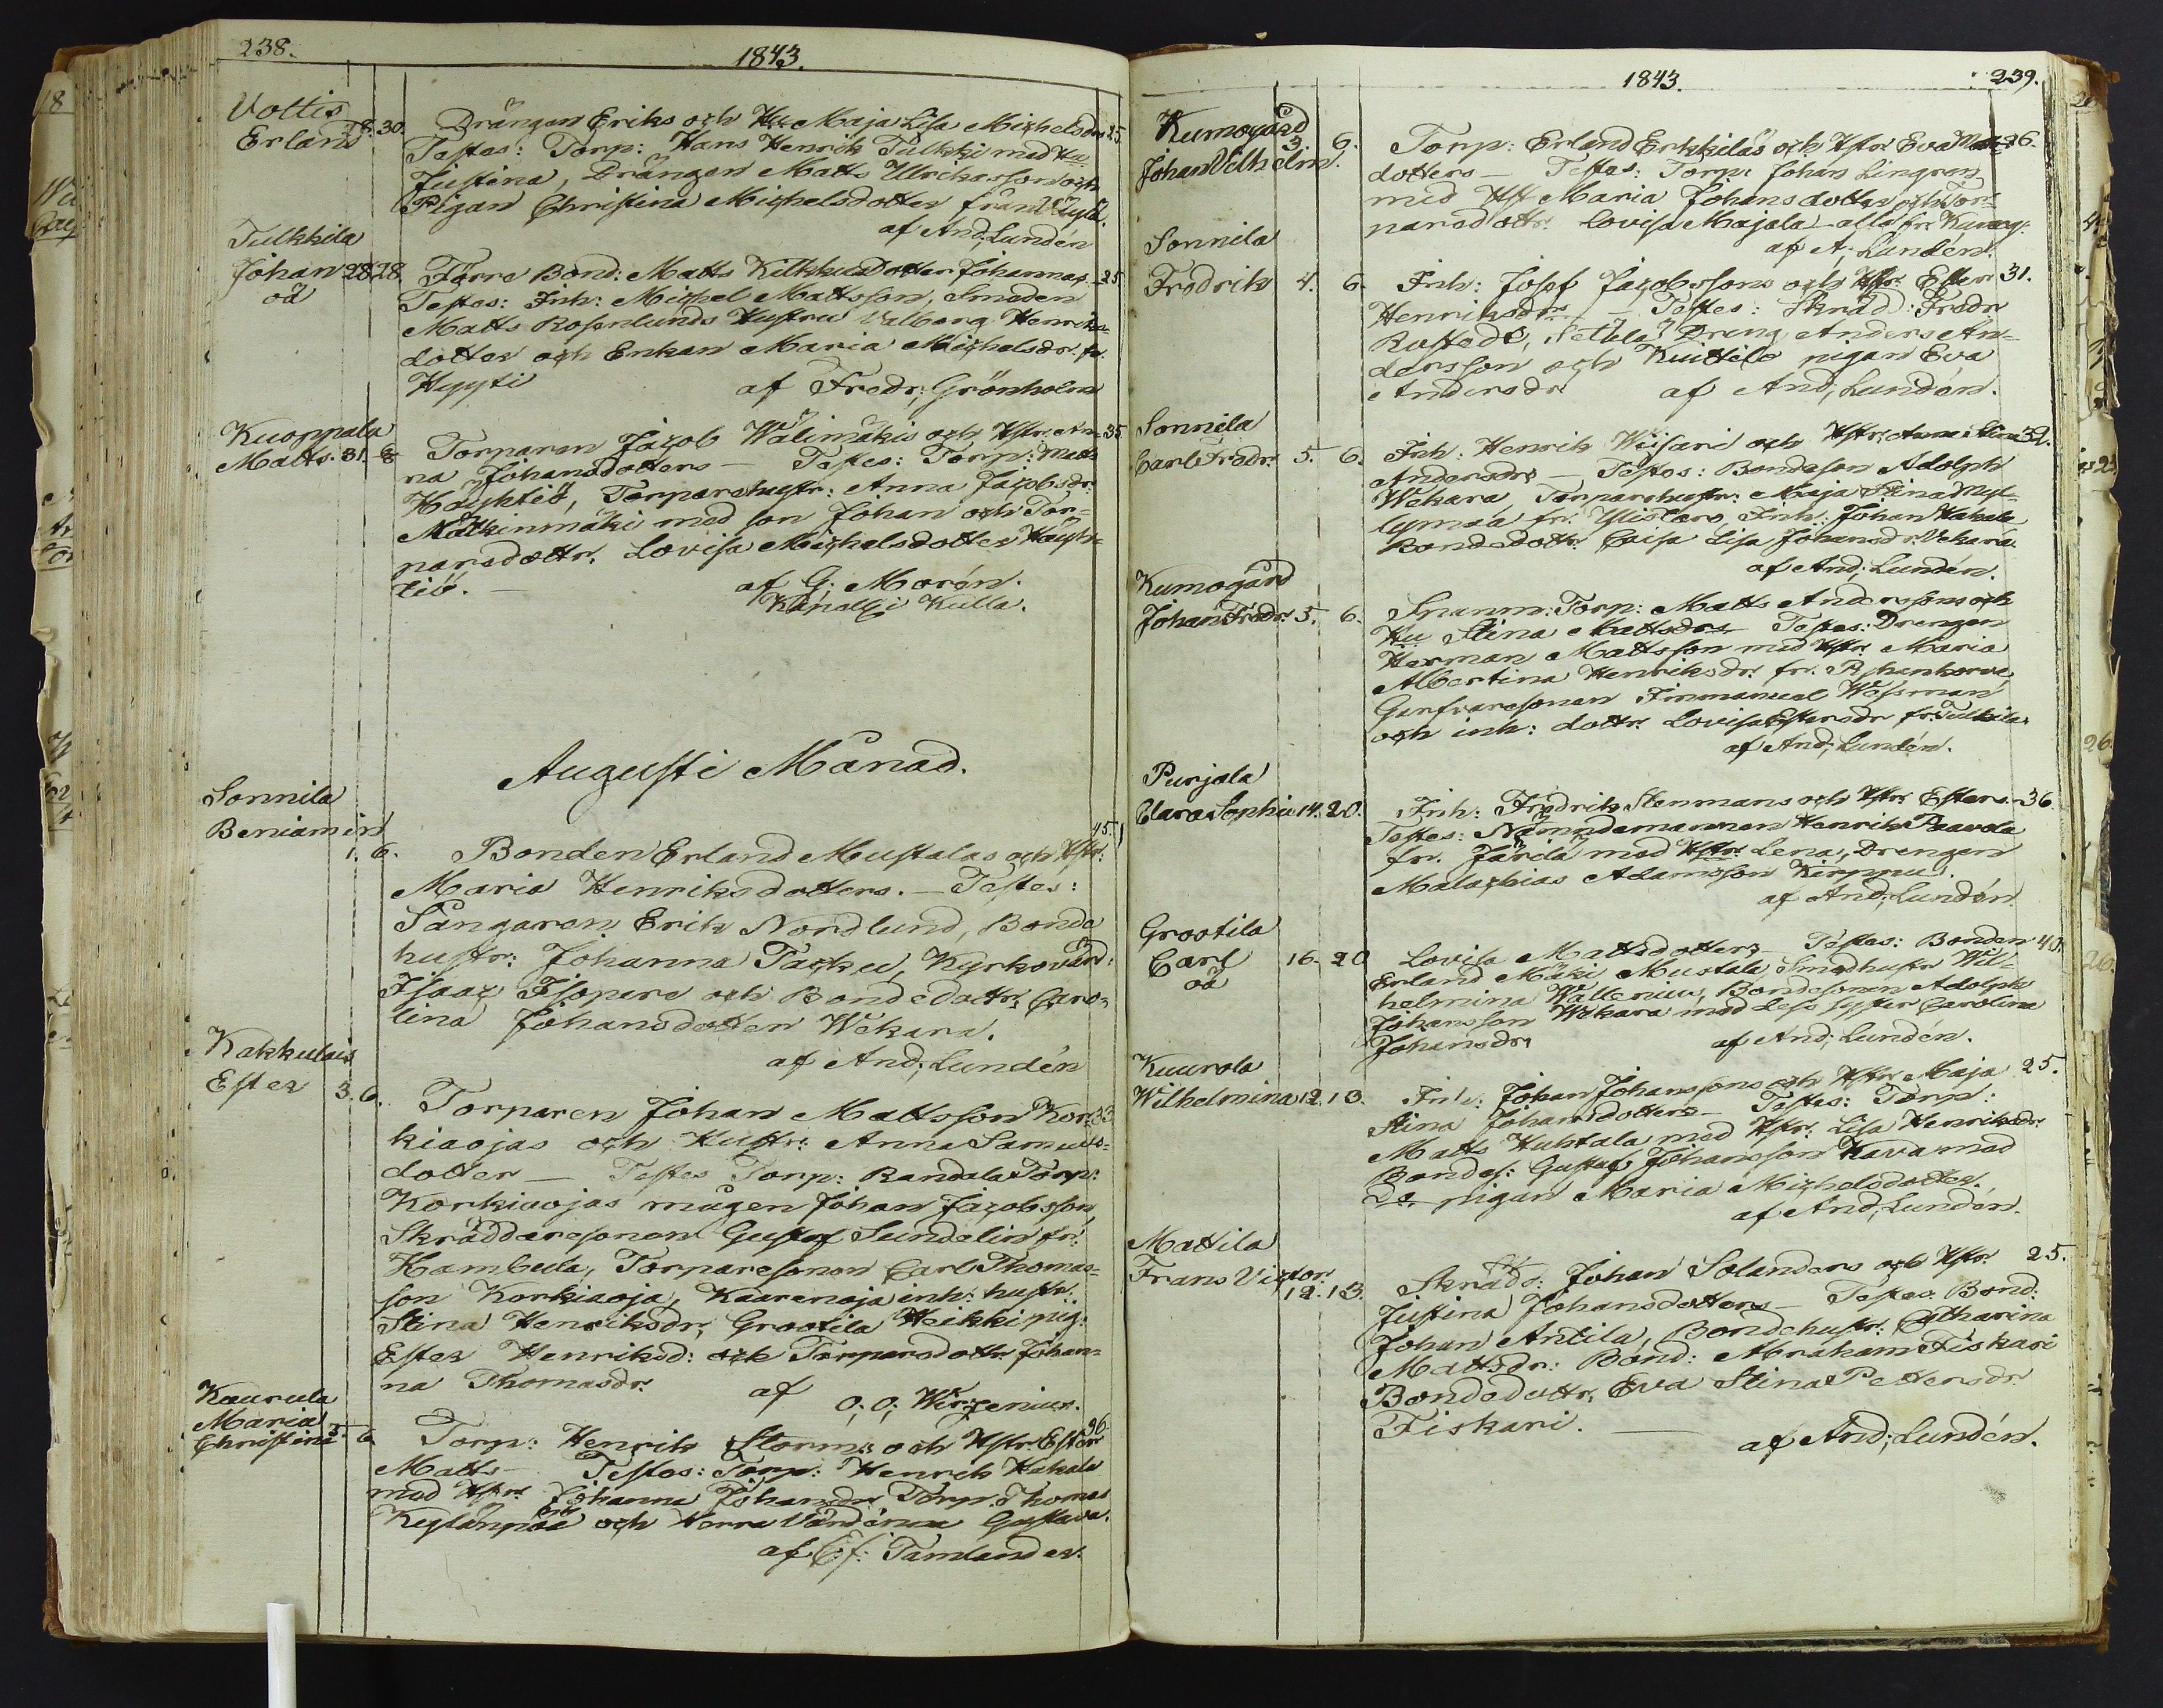 238.
1843.
Voltis
Erland 28. 30. Drängen Eriks och Hu Maja Lisa Michelsdrs 25.
Testes: Torp: Hans Henrik Tulkki med Hu
Justina, Drängen Matts Ulricksson och
Pigan Christina Michelsdotter från
af And; Lundén
Tulkkila
Johan 28 28. Förre Bond: Matts Kilkkus dotter Johannas 25
oä Testes: Inh: Michel Mattsson, Smeden
Matts Rosenlunds Hustru Valborg Henriks-
dotter och Enkan Maria Michelsdr. fr.
Hyyti af Fredr; Grönholm
Kuoppala
Matts. 31. 6 Torparen Jacob Wälimäkis och Hstr. An- 35
na Johansdotters — Testes: Torp: Matts
Häyhtiö, Torparehustr: Anna Jacobsdr:
Mätkinmäki med son Johan och Tor-
paredottr. Lovisa Michelsdotter Häyh-
tiö. — af G; Morén.
Kapell i Kulla.
Augusti Månad.
Sonnila
Beniamin
1. 6. Bonden Erland Mustalas och Hstr: 45.
Maria Henriksdotters. — Testes:
Sångaren Erik Nordlund, Bonde
hustr: Johanna Tacku, Kyrkovärd:
Isaac Isopere och Bondedottr. Caro-
lina Johansdotter Wekara.
af And; Lundén
Kakkulais
Ester 3. 6. Torparen Johan Mattsson Kor- 33.
kiaojas och Hustr: Anna Samuels-
dotter — Testes Torp: Randala Torp:
Korkiaojas mågen Johan Jacobsson,
Skräddaresonen Gustaf Sundelin fr:
Kambula, Torparesonen Carl Thomas-
son Korkiaoja, Kaarenoja enh: hustr:
Stina Henriksdr, Grootila Heikki pig:
Ester Henriksd: och Torparedottr. Johan-
na Thomasdr. af O; O; Wirzenius.
Kaurula
Maria
Christina 5. 6 Torp: Henrik Storms och Hstr. Ester 26
Matts Testes: Torp: Henrik Hakala
med Hstr. Johanna Johansdr Torp. Thomas
Keylänpää och Herra Gustava.
af C; f: Tamlander.
1843. 239.
Kumogård
3 6. Torp: Erland Erkkiläs och Hstr. Eva Matts- 26.
Johan Vilhelm. dotters — Testes: Torp: Johan Lingren
med Hst Maria Johansdotter och Tor-
paredottr. Lovisa Majala — alla fr. Kumog:
af A; Lundén.
Sonnila
Fredrik 4. 6. Inh: Josef Jacobssons och Hstr. Ester 31.
Henriksdrs — Testes: Skräd: Fredr
Rostedt, Dreng Anders An-
dersson och Kuittilo pigan Eva
Andersdr. af And; Lundén.
Sonnila
Carl Fredr. 5. 6. Inh: Henrik Wiisari och Hstr. Anna Stina 32.
Andersdrs — Testes: Bondeson Adolph
Wekara, Torparehustr: Maja Stina Myl-
lymaa fr. Inh: Johan Hakala
Bondedottr. Caisa Lisa Johansdr. Vekara
af And; Lundén.
Kumogård
Johan Fredr. 5. 6. Spanm: Torp: Matts Anderssons och
Hu Stina Mattsdrs Testes: Drengen
Herman Mattsson med Hstr. Maria
Albertina Henriksdr. fr.
Garfvaresonen Immanuel Wessman
och inh: dottr. Lovisa Estersdr fr. Tulkkila.
af And; Lundén.
Purjala
Clara Sophia 14. 20. Inh: Fredrik Stenmans och Hstr. Esters. 36.
Testes: Nämndemannen Henrik Paavola
fr. Järilä med Hstr. Lena, Drengen
Malachias Adamsson Kirppu.
af And; Lundén.
Grootila
Carl 16. 20 Lovisa Mattsdotters — Testes: Bonden 40.
oä Erland Mäki Mustala, Smedhustr Wil-
helmina Wallenius, Bondesonen Adolph
Johansson Wekara med dess syster Carolina
Johansdr. af And; Lundén.
Kuurola
Wilhelmina 12. 13. Inh: Johan Johanssons och Hstr. Maja 25.
Stina Johansdotters — Testes: Torp:
Matts Huhtala med Hstr. Lisa Henriksdr.
Bondes: Gustaf Johansson Kava med
Do. pigan Maria Michelsdotter.
af And; Lundén.
Mattila
Frans Victor.
12. 13. Skrädd: Johan Solanders och Hstr 25.
Justina Johansdotters — Testes: Bond:
Johan Antila, Bondehustr: Catharina
Mattsdr: Bond: Abraham Fiskari
Bondedottr. Eva Stina Pettersdr.
Fiskari. — af And; Lundén.